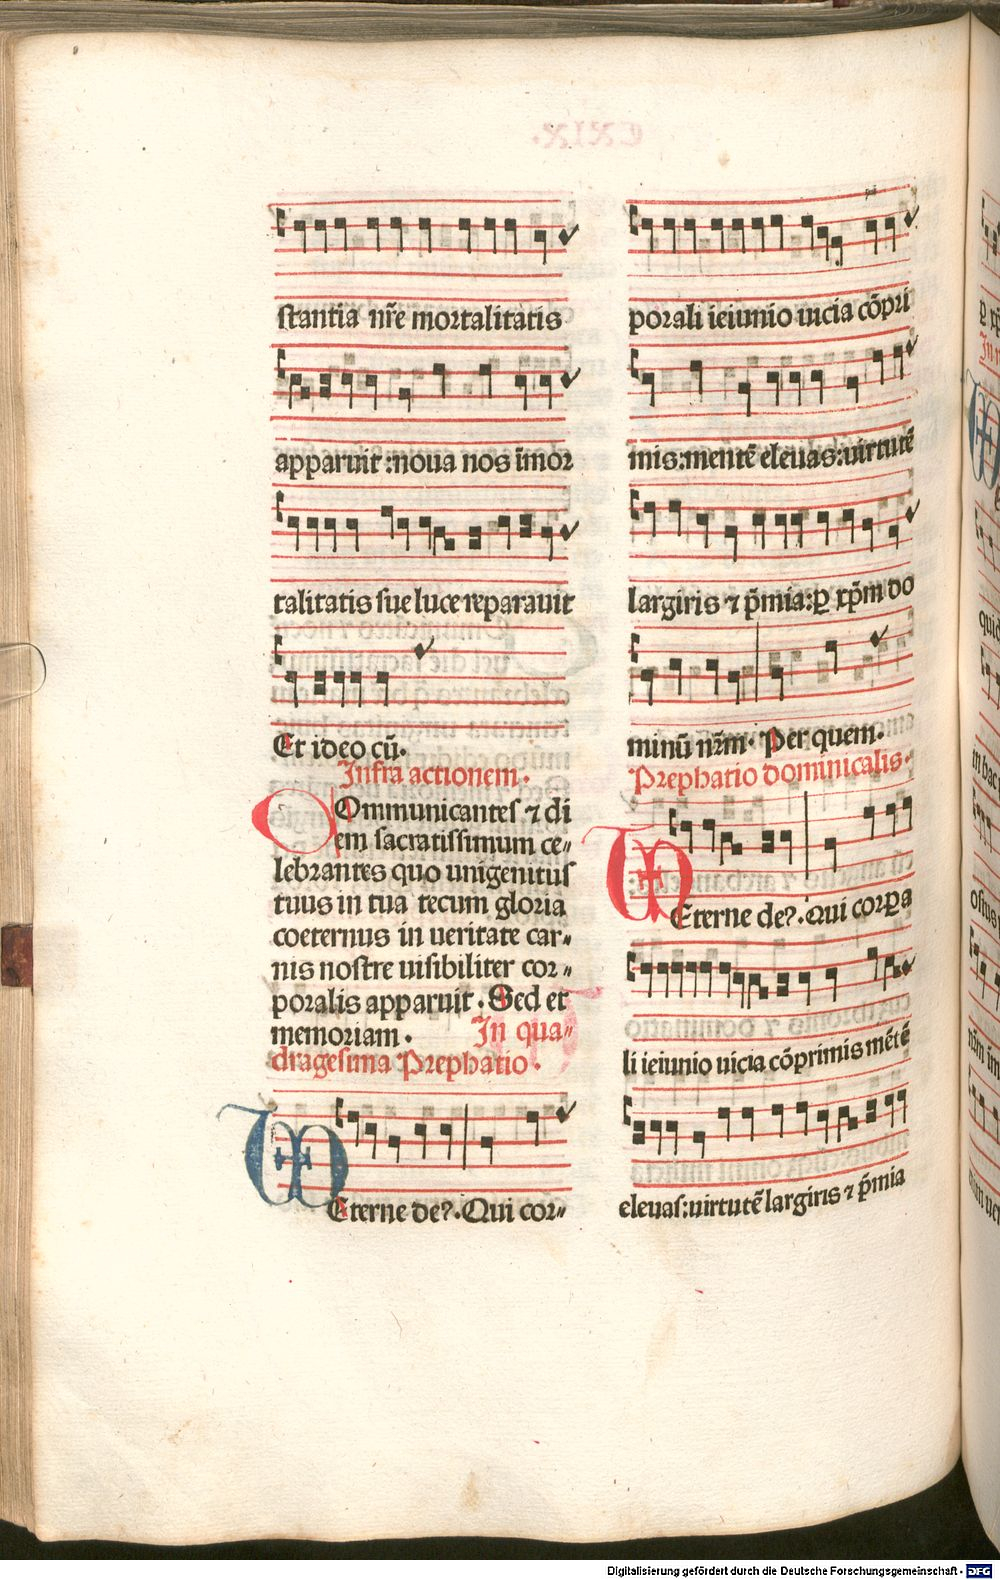 stantia nr̄e mortalitatis
apparuit : noua nos īmor
talitatis sue luce reparauit
Et ideo cū.
Infra actionem.
COmmunicantes ⁊ di
em sacratissimum ce-
lebrantes quo unigenitus
tuus in tua tecum gloria
coeternus in ueritate car-
nis nostre uisibiliter cor-
poralis apparuit. Sed et
memoriam. In qua-
dragesima Prephatio.
Eterne de?. Qui cor-
porali ieiunio uicia cōpri
mis: mentē eleuas: uirtutē
largiris ⁊ p̄mia: ꝑ xp̄m do
minū nr̄m. Per quem.
Prephatio dominicalis.
Eterne de?. Qui corꝑa
li ieiunio uicia cōprimis mētē
eleuas: uirtutē largiris ⁊ p̄mia
Digitalisierung gefördert durch die Deutsche Forschungsgemeinschaft - DFG